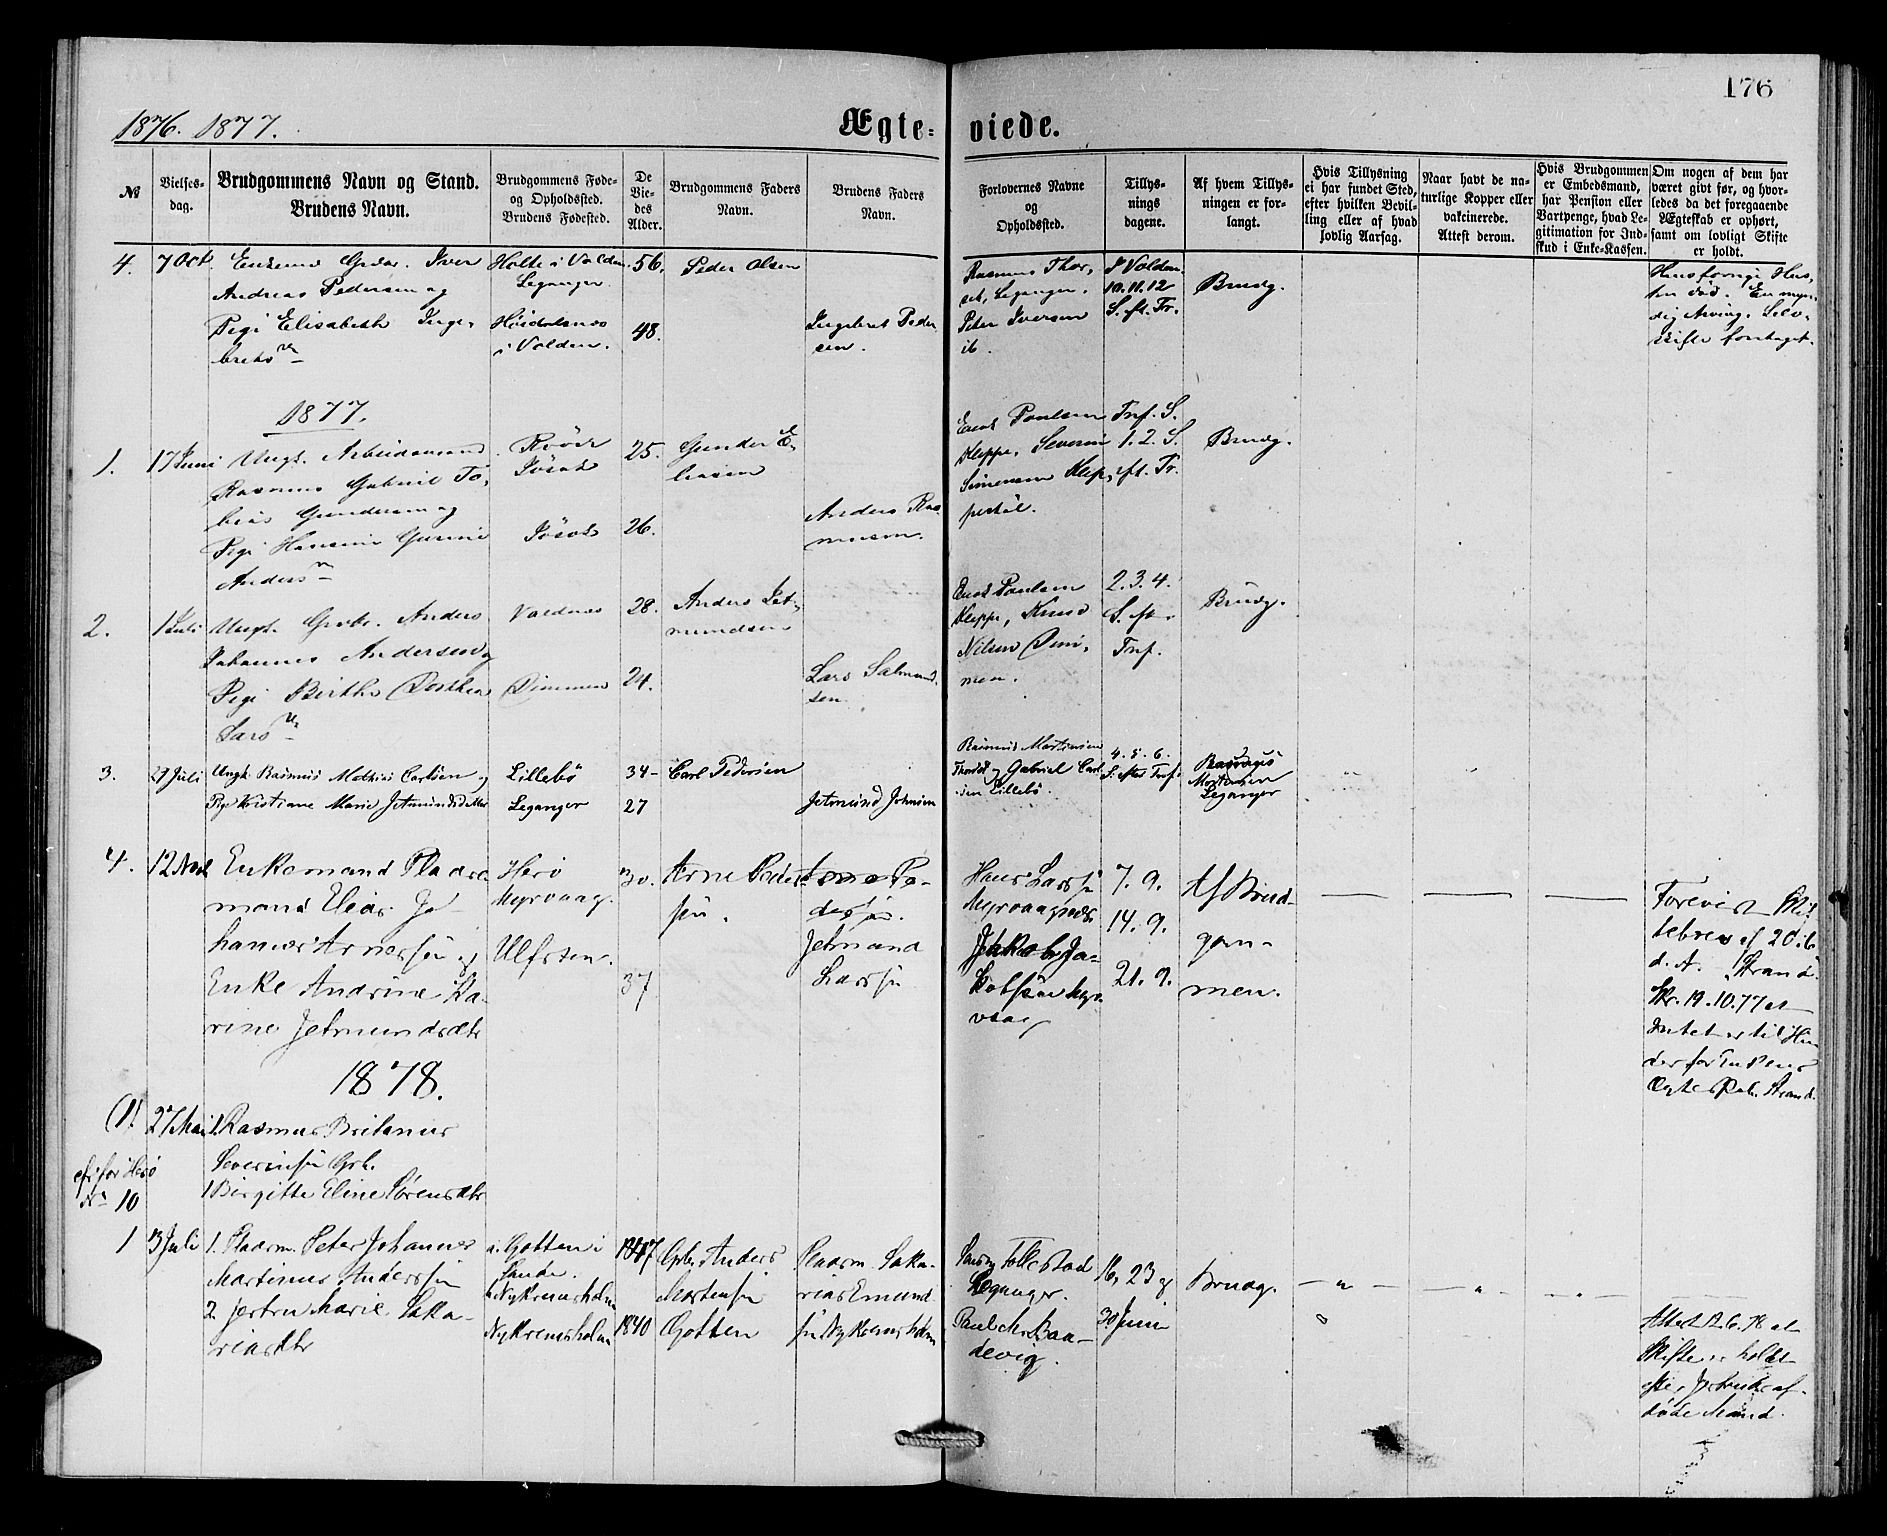 176
1876. 1877.
Ægte= viede.
№
Vielses-
dag.
Brudgommens Navn og Stand.
Brudens Navn.
Brudgommens Føde-
og Opholdssted.
Brudens Fødested.
De
Vie-
des
Alder.
Brudgommens Faders
Navn.
Brudens Faders
Navn.
Forlovernes Navne
og
Opholdssted.
Tillys-
nings
dagene.
Af hvem Tillys-
ningen er for-
langt.
Hvis Tillysning
ei har fundet Sted,
efter hvilken Bevil-
ling eller af hvad
lovlig Aarsag.
Naar havt de na-
turlige Kopper eller
vakcinerede.
Attest derom.
Hvis Brudgommen
er Embedsmand,
har Pension eller
Vartpenge, hvad Le-
gitimation for Ind-
skud i Enke-Kassen.
Om nogen af dem har
været givt før, og hvor-
ledes da det foregaaende
Ægteskab er ophørt,
samt om lovligt Skifte
er holdt.
4. 7 Oct. Enkem. Iver
Andreas Pedersen og
Pige Elisabeth Inge-
brets
Holte i Volden
Leganger
i Volden.
56.
48.
Peder Olsen
Ingebret Peder
sen.
Rasmus Thor-
set, Leganger.
Peter Iversen
ib.
I Volden
10. 11. 12
S. eft. Tr.
Brudg.
1877.
1. 17 Juni Ungk. Arbeidsmand
Rasmus Gabriel To-
bias Gundersen og
Pige Hansine Gurine
Anders
Jøsok
Jøsok
25.
26.
Gunder E-
liasen
Anders Ras-
musen.
Enok Poulsen
Kleppe, Severin
Simensen Klep-
Trnf. S.
1. 2. S.
eft. Tr.
Brudg.
2. 1 Juli Ungk. Anders
Johannes Andersen og
Pige Birthe Dorthea
Lars
Voldnes
Dimmen
28.
24.
Anders Jet-
mundsen
Lars Salmund-
sen
Enok Poulsen
Kleppe, Knud
Nilsen Dim-
men.
2. 3. 4.
S. eft.
Trnf.
Brudg.
3. 29 Juli Ungk. Rasmus Mathias Carlsen og
Pige Kristiane Marie Jetmundsdatter
Lillebø
Leganger
34
27
Carl Pedersen
Jetmund Johnsen
Rasmus Martinsen
Thorset og Gabriel Carl
sen Lillebø.
4. 5. 6.
S. efter Trnf.
Rasmus
Mortensen
Leganger
4. 12 Nov Enkemand Pladse-
mand Elias Jo-
hannes Arnessøn og
Enke Andrine Ka-
rine Jetmundsdtr
Herø
Myrvaag.
Ulfsten.
30.
37
Arne Peder-
søn.
Arne Pe-
dersøn.
Jetmund
Larssøn
Hans Larssøn
Myrvaagnes
Jakob Ja-
kobsøn Myr-
vaag
7. 9.
14. 9.
21. 9.
Af Brud-
gom-
men.
Forevist Skif
tebrev af 20
d. A. Strand
19.10.77 at
Intet er til Hin
der for Enkens
Ægteskab. Strand.
1878.
(1) 27 Mai 1. Rasmus Britanus
Severinsøn Grb.
Birgitte Eline Sørensdtr
cfr for Herø
No 10
1 3 Juli 1. Pladsm. Peter Johannes
Martinus Anderssøn
2. Jertru Marie Saka-
riasdtr
a. Gotten i
Sande.
b. Nykremsholm
Nykremsholm
1847
1840
Grbr Anders
Mortensøn
Gotten
Pladsm Saka-
rias Emund
søn Nykremsholm
Leganger.
Paul M. Baa-
devig.
16, 23 og
30 Juni
Brudg.
Attest 12.6.78 at
Skifte er holdt
efter Jertrus af-
døde Mand.